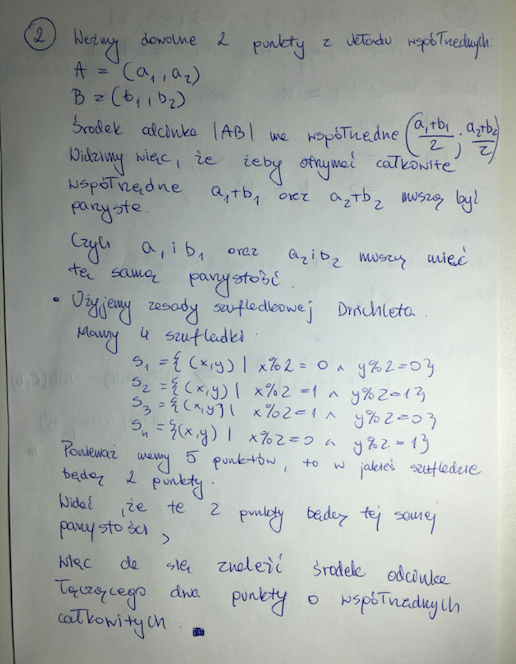 ② Weźmy dowolne 2 punkty z układu współrzędnych:
A = (a₁, a₂)
B = (b₁, b₂)
Środek odcinka |AB| ma współrzędne (a₁+b₁/2 ; a₂+b₂/2)
Widzimy więc, że żeby otrzymać całkowite
współrzędne a₁+b₁ oraz a₂+b₂ muszą być
parzyste.
Czyli a₁ i b₁ oraz a₂ i b₂ muszą mieć
tę samą parzystość.
• Użyjemy zasady szufladkowej Drichleta.
Mamy 4 szufladki:
S₁ = {(x,y) | x%2 = 0 ∧ y%2=0}
S₂ = {(x,y) | x%2 = 1 ∧ y%2=1}
S₃ = {(x,y) | x%2=1 ∧ y%2=0}
S₄ = {(x,y) | x%2=0 ∧ y%2=1}
Ponieważ mamy 5 punktów, to w jakiejś szufladzie
będą 2 punkty.
Widać, że te 2 punkty będą tej samej
parzystości,
więc da się znaleźć środek odcinka
łączącego dwa punkty o współrzędnych
całkowitych.